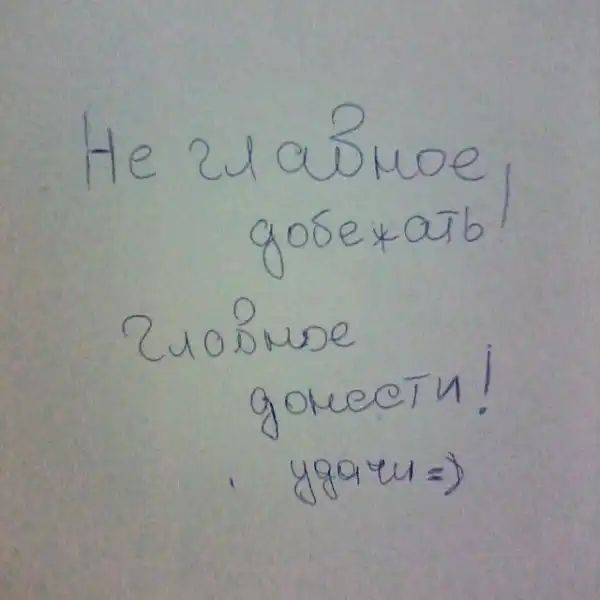 Не главное
добежать!
Главное
донести!
удачи =)